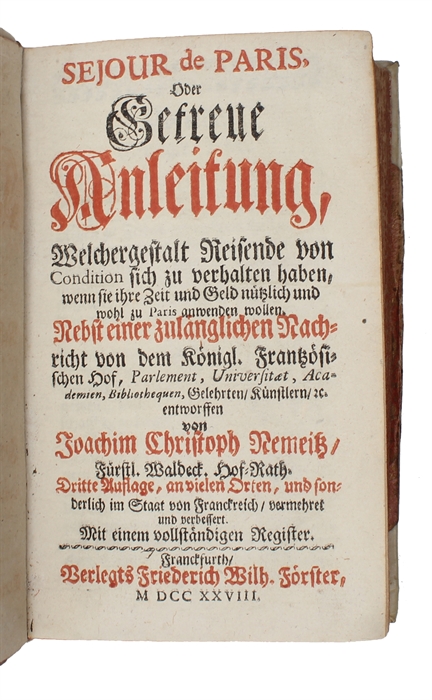 SEJOUR de PARIS,
Oder
Getreue
Anleitung,
Welchergestalt Reisende von
Condition sich zu verhalten haben,
wenn sie ihre Zeit und Geld nützlich und
wohl zu Paris anwenden wollen.
Nebst einer zulänglichen Nach-
richt von dem Königl. Frantzösi-
schen Hof, Parlement, Universitæt, Aca-
demien, Bibliothequen, Gelehrten/ Künstlern/ ꝛc.
entworffen
von
Joachim Christoph Nemeitz/
Fürstl. Waldeck. Hof-Rath.
Dritte Auflage, an vielen Orten, und son-
derlich im Staat von Franckreich/ vermehret
und verbessert.
Mit einem vollständigen Register.
Franckfurth/
Verlegts Friederich Wilh. Förster,
M DCC XXVIII.